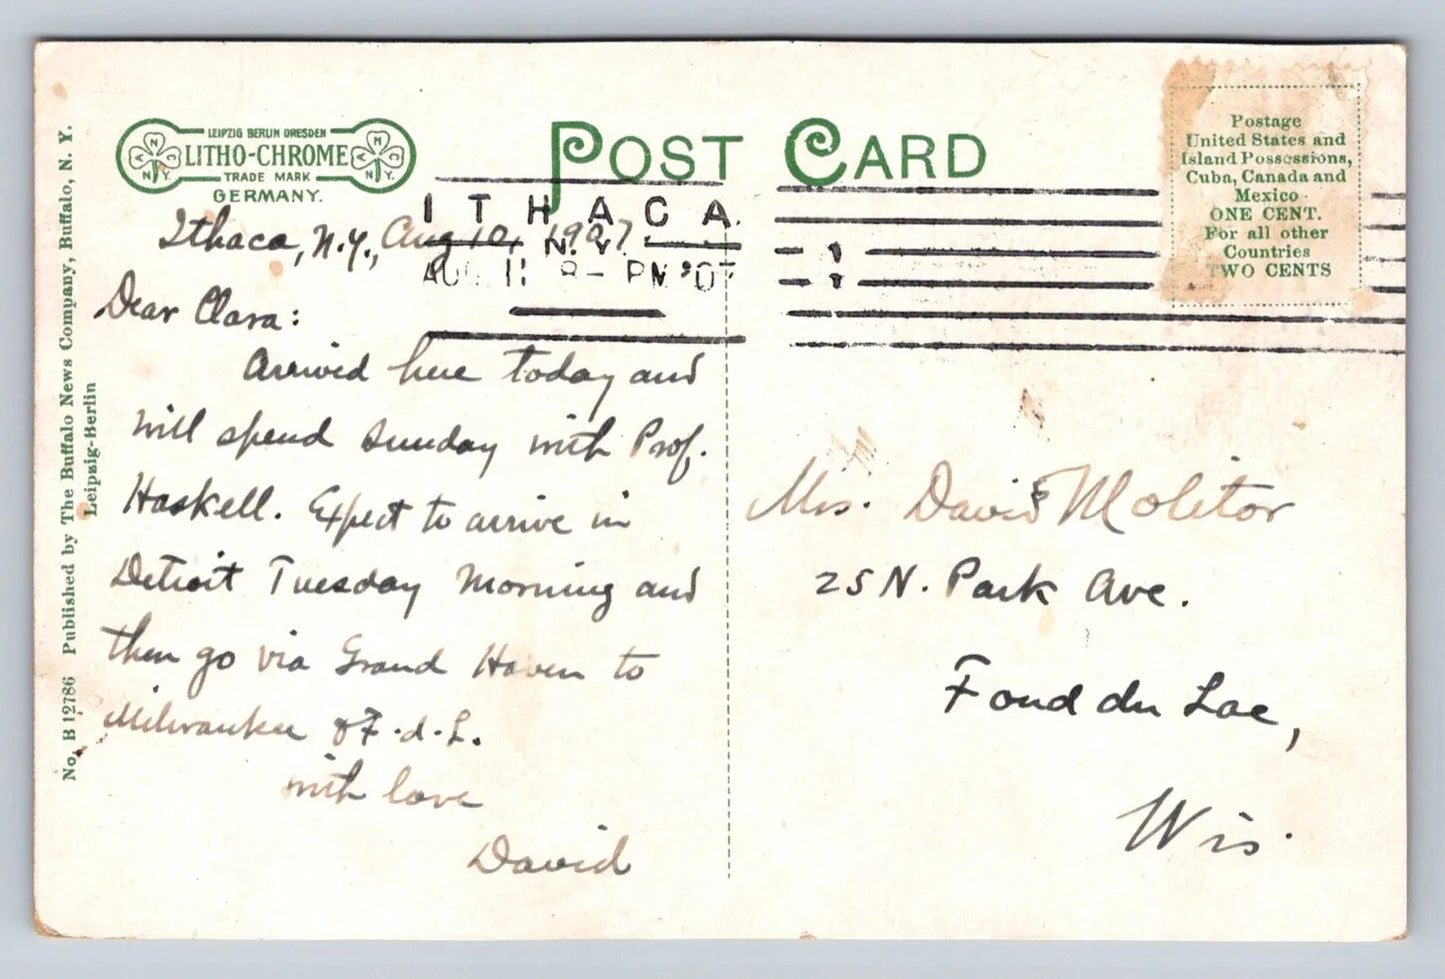 No. B 12786 Published by The Buffalo News Company, Buffalo, N. Y.
Leipzig-Berlin
LEIPZIG BERLIN DRESDEN
LITHO-CHROME
TRADE MARK
GERMANY.
A N C
N.Y.
A N C
N.Y.
POST CARD
Postage
United States and
Island Possessions,
Cuba, Canada and
Mexico
ONE CENT.
For all other
Countries
TWO CENTS
ITHACA.
N. Y.
AUG 11 8- PM '07
Ithaca, N.Y., Aug 10, 1907.
Dear Clara:
Arrived here today and
will spend Sunday with Prof.
Haskell. Expect to arrive in
Detroit Tuesday morning and
then go via Grand Haven to
Milwaukee & F.d.L.
with love
David
Mrs. David Molitor
25 N. Park Ave.
Fond du Lac,
Wis.